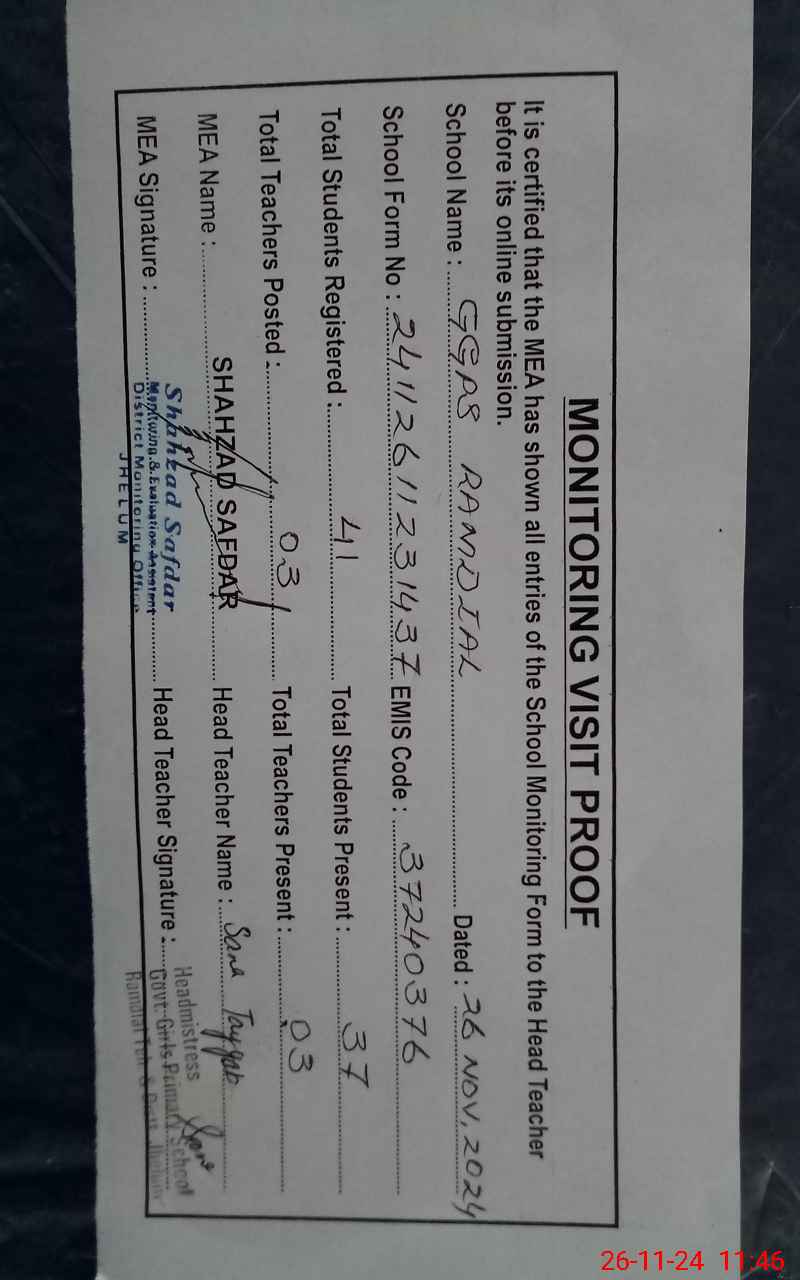 MONITORING VISIT PROOF
It is certified that the MEA has shown all entries of the School Monitoring Form to the Head Teacher
before its online submission.
School Name : GGPS RAMDIAL Dated : 26 NOV, 2024
School Form No : 24112611231437 EMIS Code : 37240376
Total Students Registered : 41 Total Students Present : 37
Total Teachers Posted : 03 Total Teachers Present : 03
MEA Name : SHAHZAD SAFDAR Head Teacher Name : Sana Tayyab
MEA Signature : Head Teacher Signature :
Shahzad Safdar
Monitoring & Evaluation Assistant
District Monitoring Office
JHELUM
Headmistress
Govt. Girls Primary School
Ramdial Teh & Distt. Jhelum
26-11-24 11:46